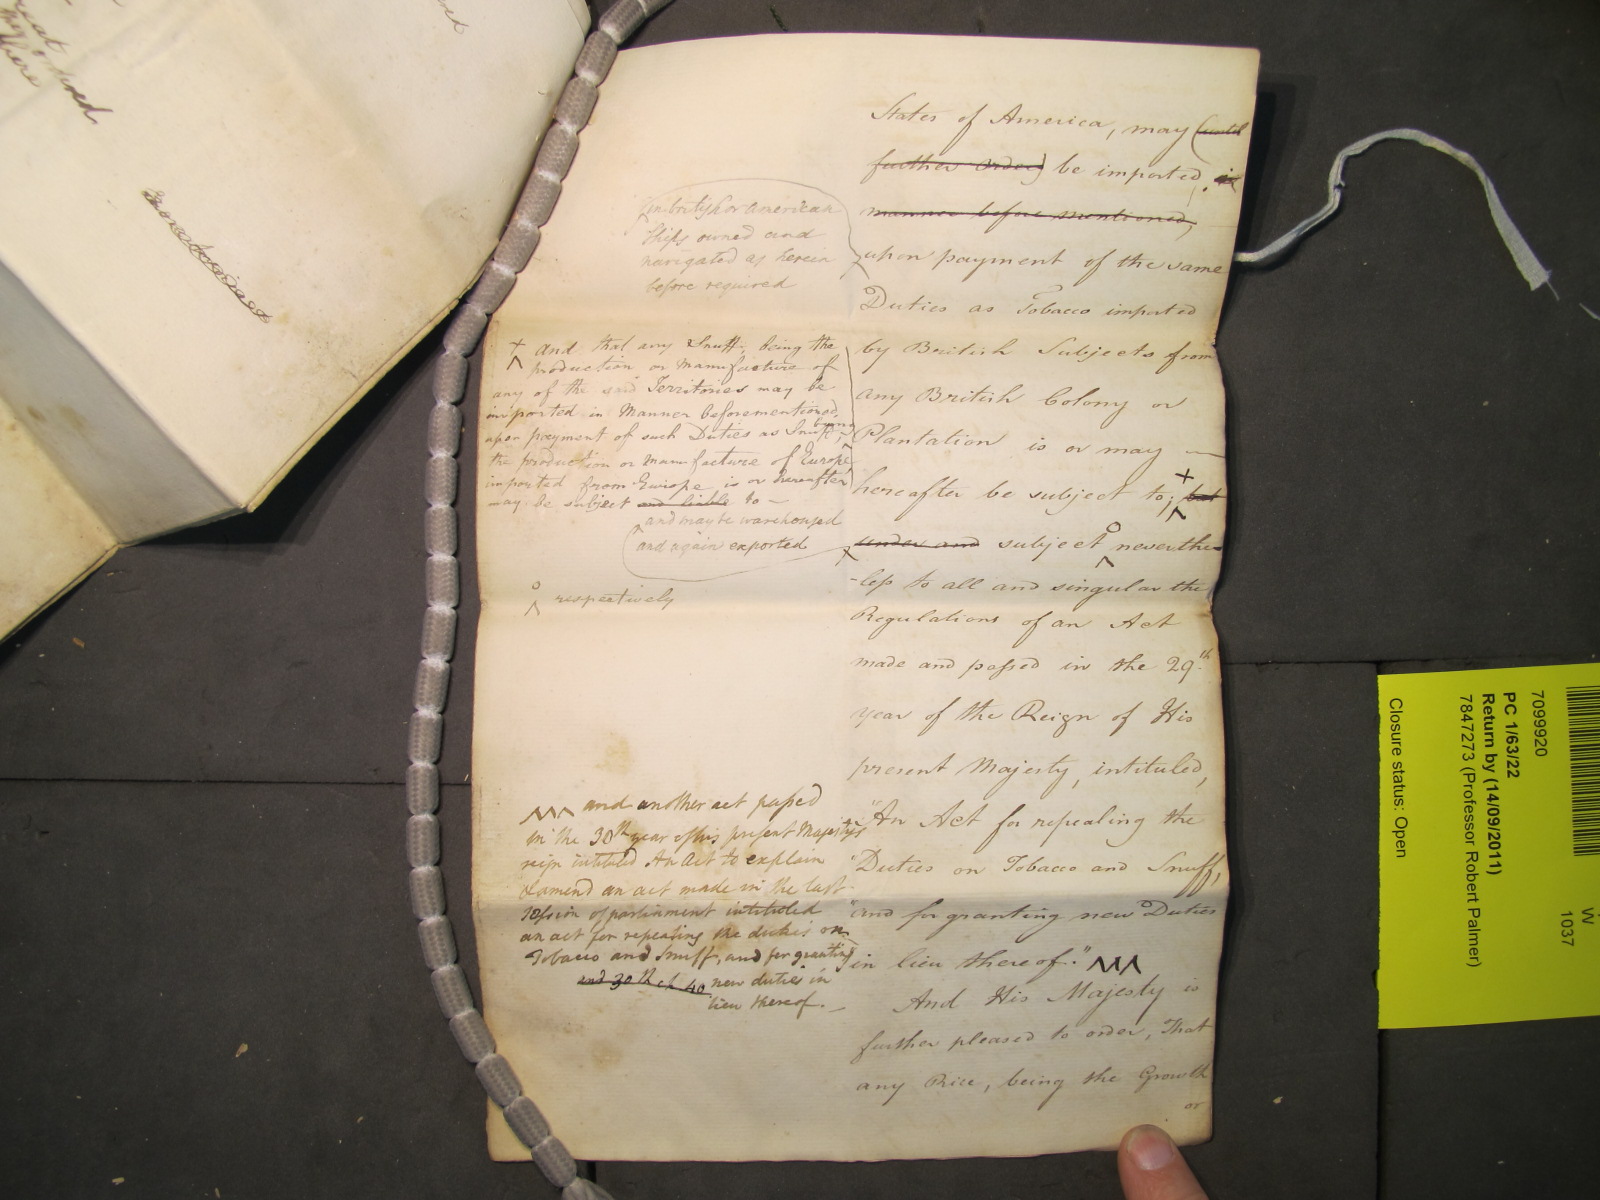 States of America, may (until
further Order) be imported, in
manner before mentioned,
upon payment of the same
Duties as Tobacco imported
by British Subjects from
any British Colony or
Plantation is or may
hereafter be subject to; but
under and subject neverthe-
-less to all and singular the
Regulations of an Act
made and passed in the 29.th
year of the Reign of His
present Majesty, intituled,
"An Act for repealing the
"Duties on Tobacco and Snuff,
"and for granting new Duties
in lieu thereof."
And His Majesty is
further pleased to order, That
any Rice, being the Growth
or
in british or american
ships owned and
navigated as herein
before required
+ and that any Snuff, being the
production or Manufacture of
any of the said Territories may be
imported in Manner beforementioned,
upon payment of such Duties as Snuff, being
the production or manufacture of Europe
imported from Europe is or hereafter
may be subject and liable to —
and may be warehoused
and again exported
o respectively
and another act passed
in the 30th year of his present Majesty's
reign intituled An Act to explain
& amend an act made in the last
session of parliament intituled
an act for repealing the duties on
Tobacco and Snuff, and for granting
and 30th ch 40 new duties in
lieu thereof. —
7099920
PC 1/63/22
Return by (14/09/2011)
7847273 (Professor Robert Palmer)
Closure status: Open
W
1037
here